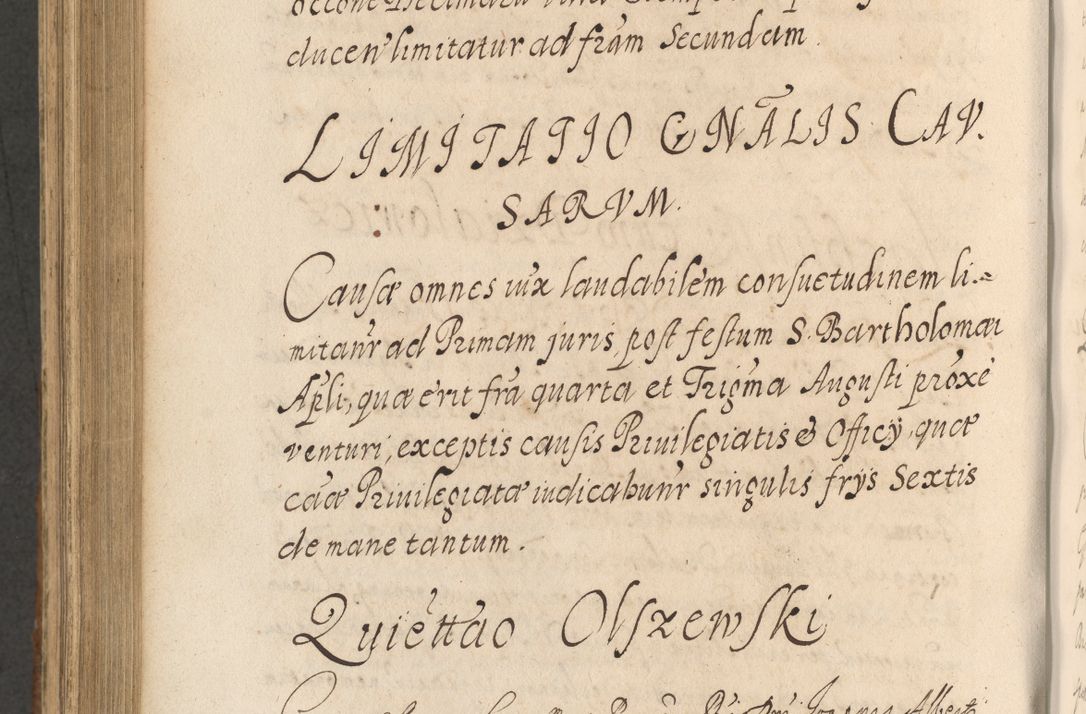 ducen limitatur ad fram Secundam.
LIMITATIO GNALIS CAV.
SARVM.
Causæ omnes iux laudabilem consuetudinem li-
mitanr ad Primam juris, post festum S. Bartholomæi
Apli, quæ erit fra quarta et Trigma Augusti proxe
venturi, exceptis causis Privilegiatis & Officÿ, quæ
caæ Privilegiatæ iudicabunr singulis frÿs Sextis
de mane tantum.
Quiettao Olszewski